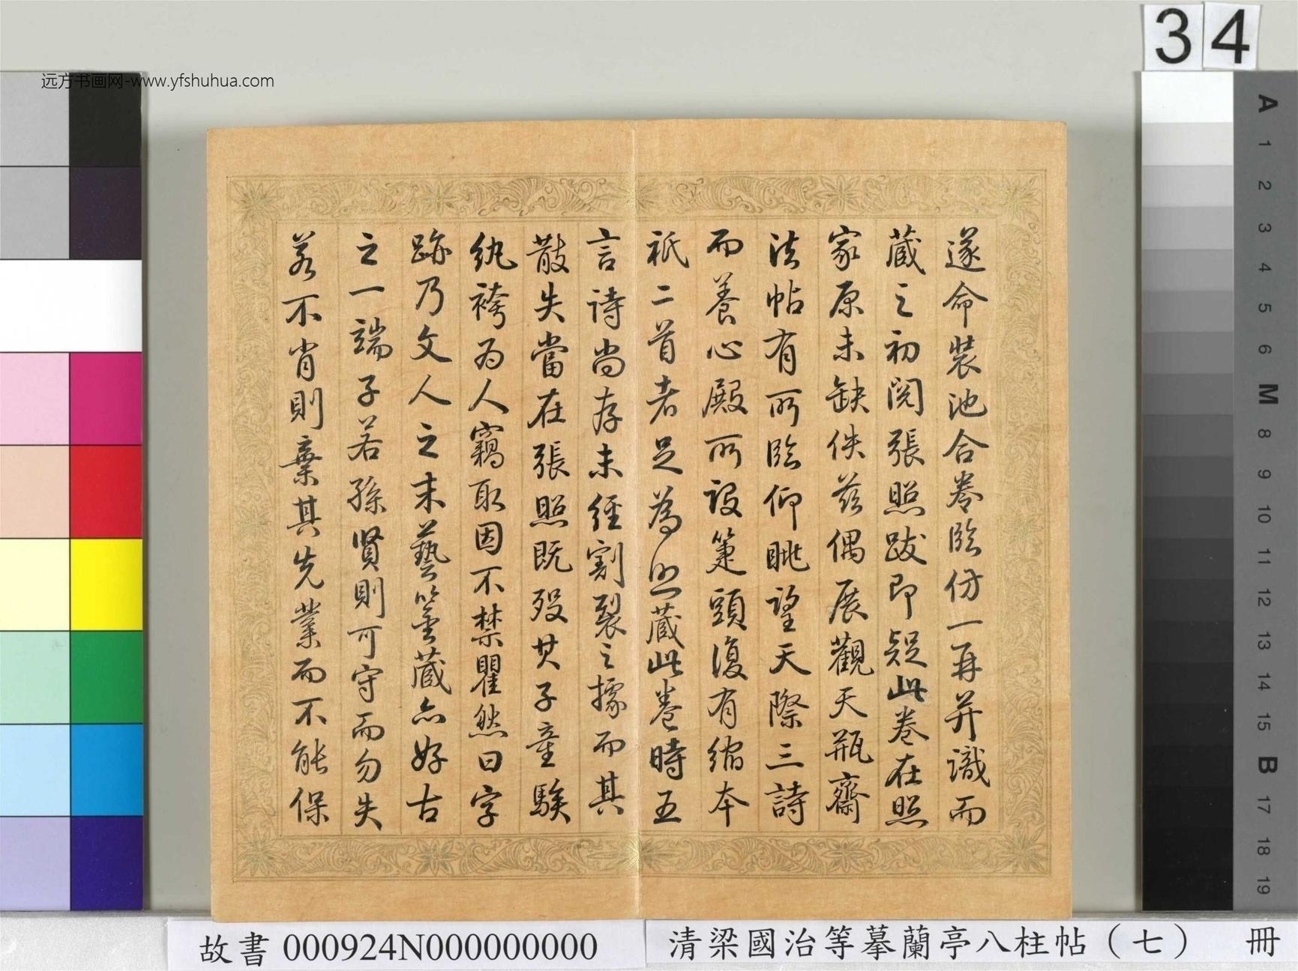 34
远方书画网-www.yfshuhua.com
遂命裝池合卷臨仿一再并識而
蔵之初閱張照跋即疑此卷在照
家原未缺佚茲偶展觀天瓶齋
法帖有所臨仰眺望天際三詩
而養心殿所設箑頭復有縮本
祇二首者足為照蔵此卷時五
言詩尚存未經割裂之據而其
散失當在張照既歿其子童騃
紈袴為人竊取因不禁瞿然曰字
跡乃文人之末藝簽蔵亦好古
之一端子若孫賢則可守而勿失
若不肖則棄其先業而不能保
A
1
2
3
4
5
6
M
8
9
10
11
12
13
14
15
B
17
18
19
故書 000924N000000000
清梁國治等摹蘭亭八柱帖（七） 冊